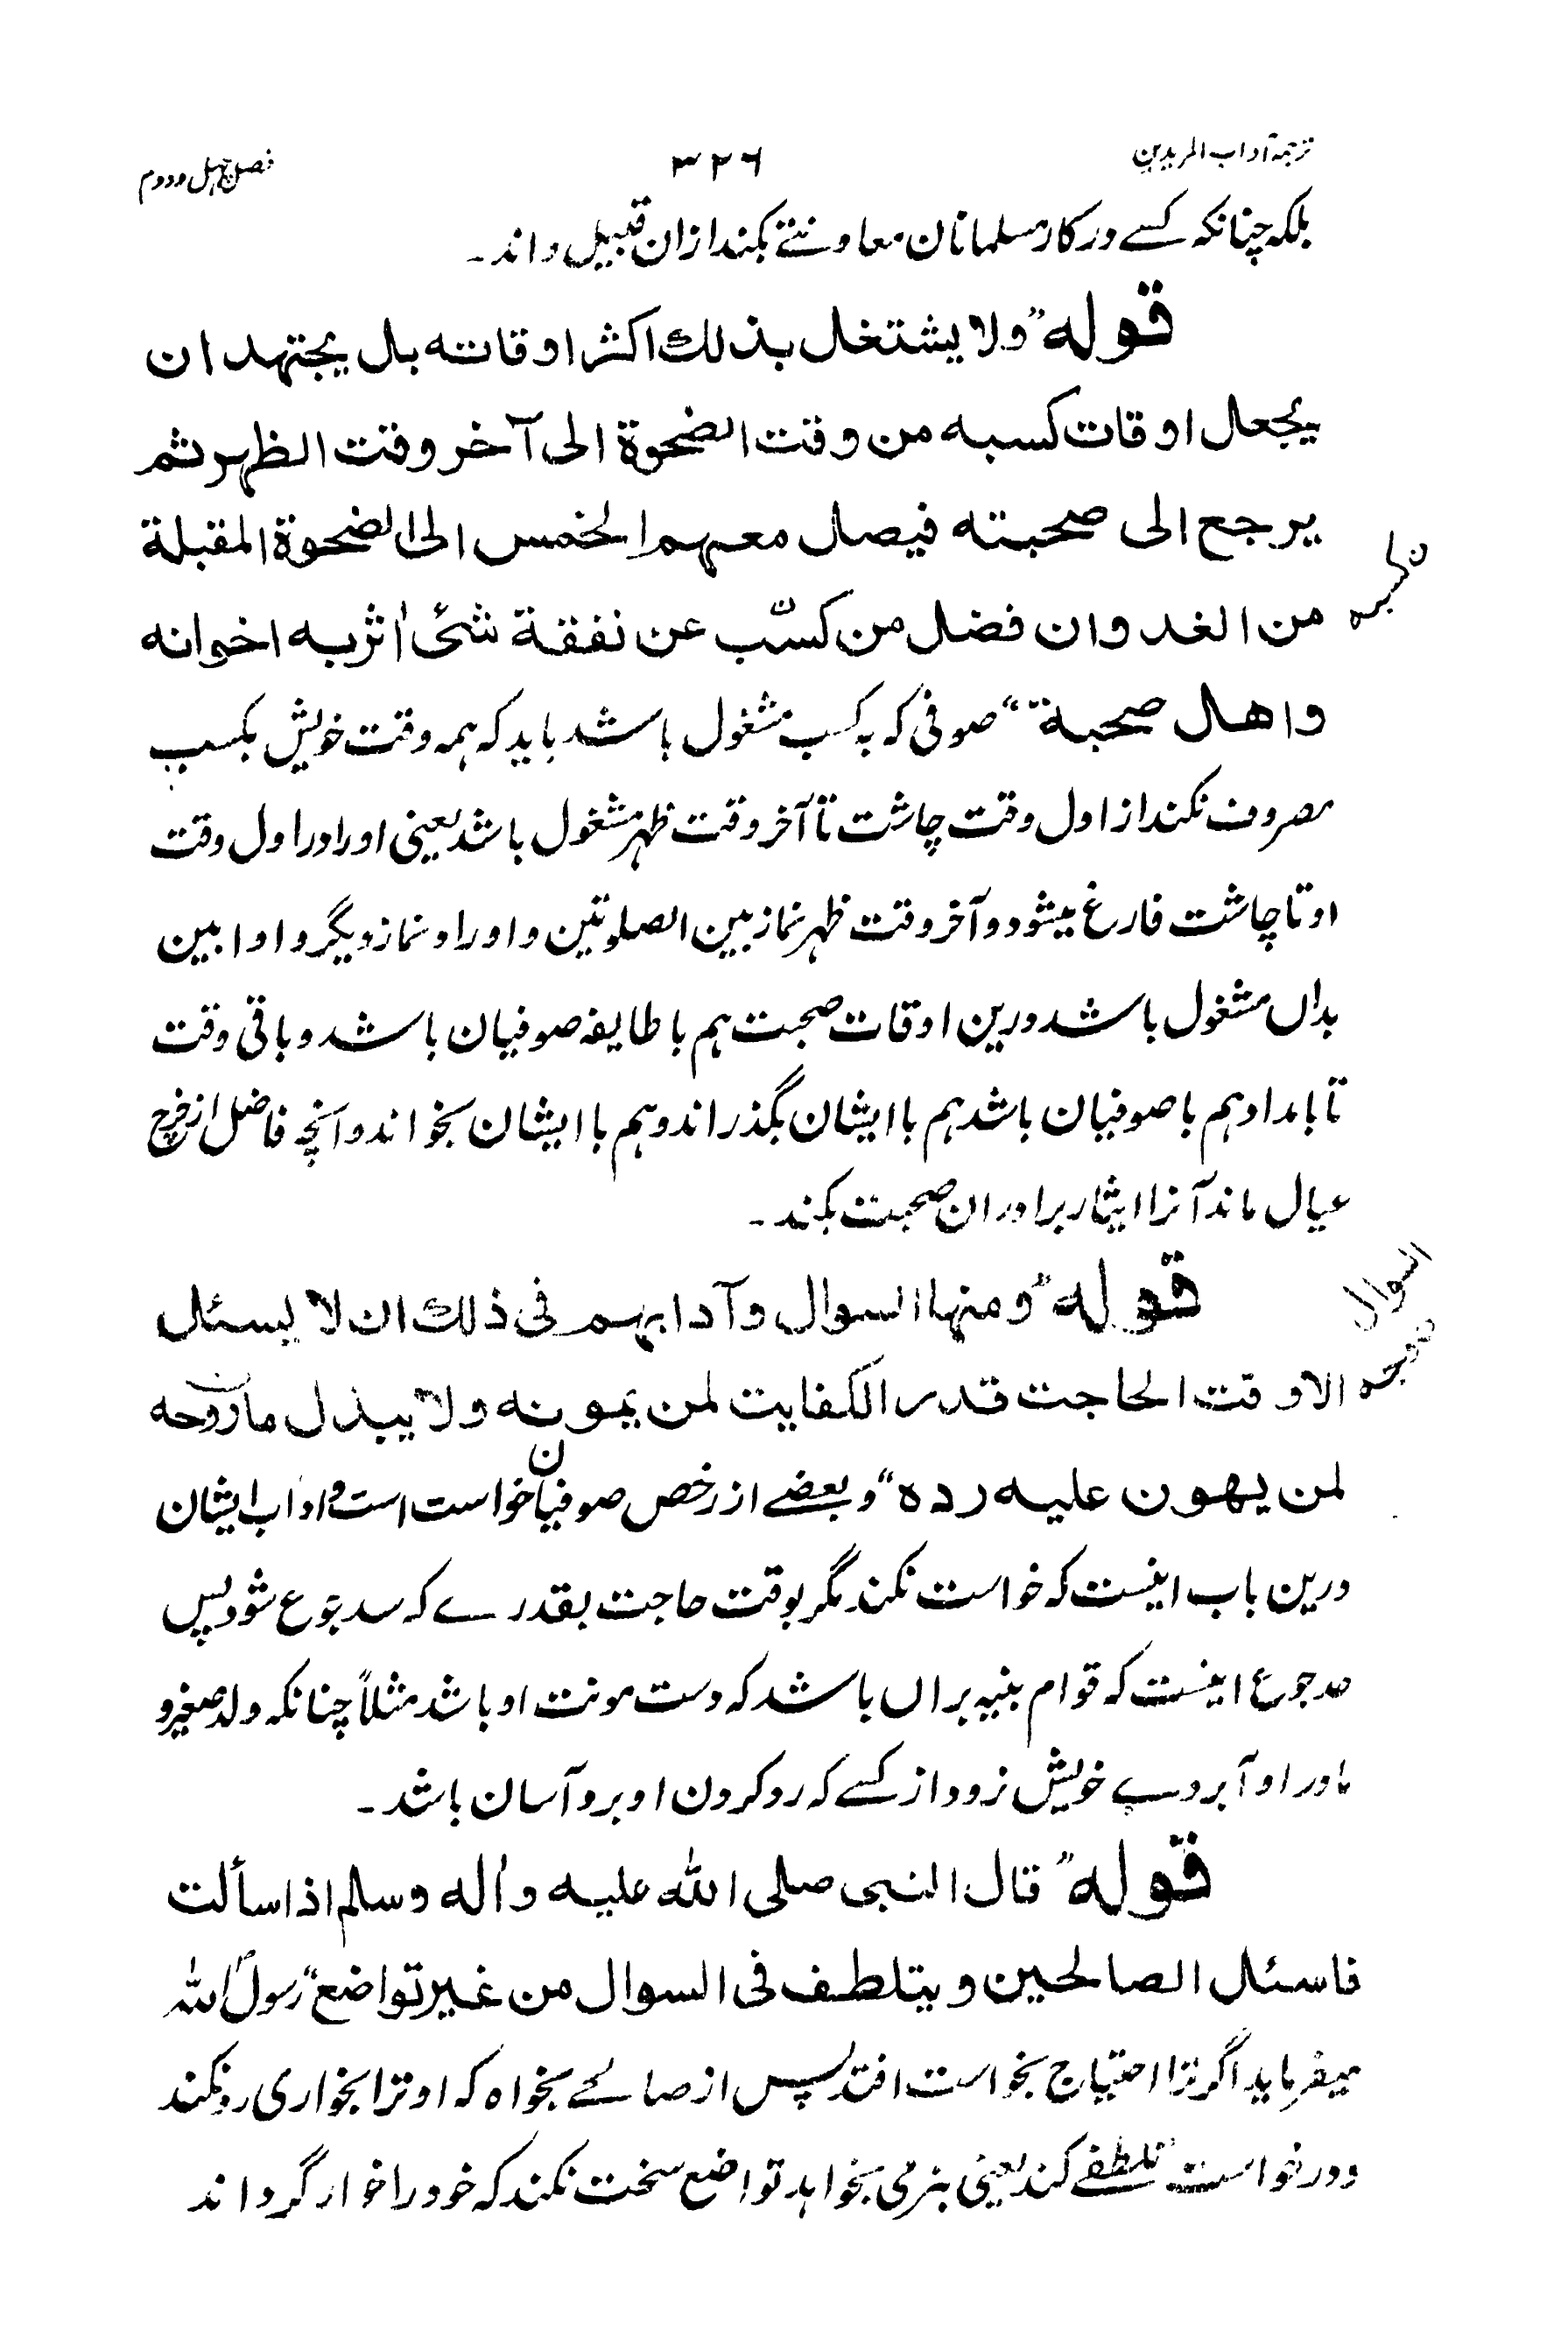 ترجمۂ آداب المریدین
۳۲۶
فصل چہل و دوم
بلکہ چنانکہ کسے در کار مسلمانان معاونتے بکند ازان قبیل داند۔
قولہ "ولا یشتغل بذلك اکثر اوقاته بل یجتهد ان
یجعل اوقات کسبه من وقت الضحوة الی آخر وقت الظهر ثم
یرجع الی صحبته فیصل معهم الخمس الی الضحوة المقبلة
ن کسبہ
من الغد وان فضل من کسب عن نفقة شئ اٰثر به اخوانه
واهل صحبة" صوفی کہ بہ کسب مشغول باشد باید کہ ہمہ وقت خویش بکسب
مصروف نکند از اول وقت چاشت تا آخر وقت ظہر مشغول باشد یعنی اوراد را اول وقت
او تا چاشت فارغ میشود و آخر وقت ظہر نماز بین الصلوتین و اوراد و نماز دیگر و اوابین
بداں مشغول باشد درین اوقات صحبت ہم با طایفہ صوفیان باشد و باقی وقت
تا بامداد ہم با صوفیان باشد ہم با ایشان بگذراند و ہم با ایشان بخواند و آنچہ فاضل از خرچ
عیال ماند آنرا ایثار برادران صحبت بکند۔
قولہ "ومنها السوال وآدابهم فی ذلك ان لا یسئل
السوال
الا وقت الحاجت قدر الکفایت لمن یمونه ولا یبذل ماروحه
ن وجہہ
لمن یهون علیه رده" و بعضے از رخص صوفیان خواست است و اداب ایشان
درین باب اینست کہ خواست نکند مگر بوقت حاجت بقدرے کہ سد جوع شود پس
سد جوع اینست کہ قوام بنیہ براں باشد کہ دست مونت او باشد مثلاً چنانکہ ولد صغیر و
مادر او آبروے خویش نرود از کسے کہ رد کردن او برو آسان باشد۔
قولہ "قال النبی صلی الله علیه واٰله وسلم اذا سألت
فاسئل الصالحین ویتلطف فی السوال من غیر تواضع" رسولؐ اللہ
میفرماید اگر ترا احتیاج بخواست افتد پس از صالحے بخواہ کہ او ترا بخواری رد نکند
و در خواست تلطفے کند یعنی بنرمی بخواہد تواضع سخت نکند کہ خود را خوار گرداند